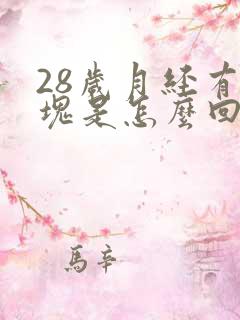 28歲月经有
塊是怎麼回
馬辛